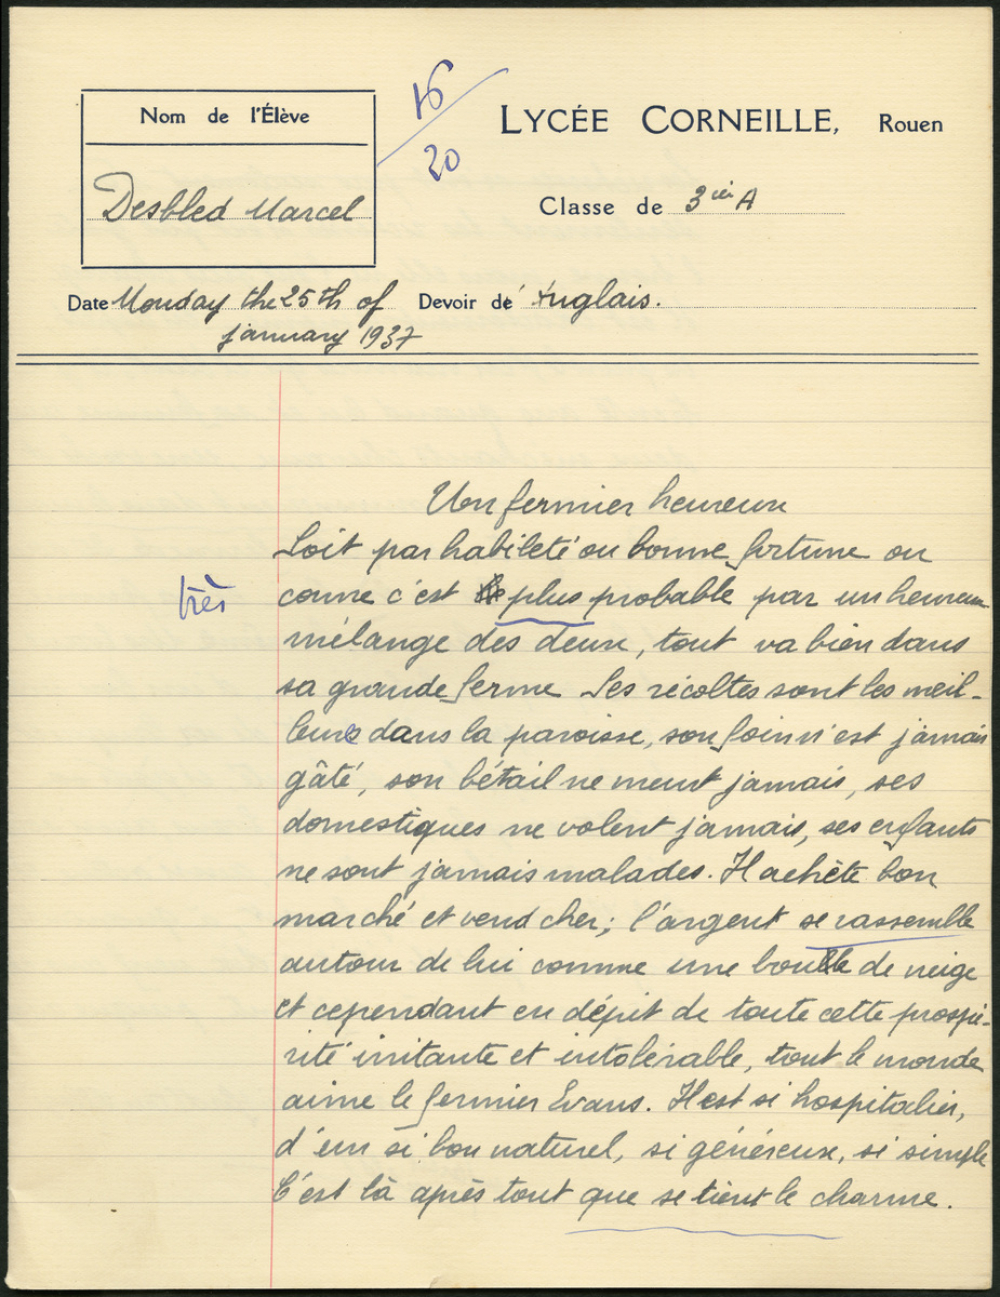 Nom de l'Élève
Desbled Marcel
16
20
LYCÉE CORNEILLE, Rouen
Classe de 3ième A
Date Monday the 25th of
january 1937
Devoir d' Anglais.
Un fermier heureux
Soit par habileté ou bonne fortune ou
très
comme c'est plus probable par un heureux
mélange des deux, tout va bien dans
sa grande ferme Ses récoltes sont les meil-
leures dans la paroisse, son foin n'est jamais
gâté, son bétail ne meurt jamais, ses
domestiques ne volent jamais, ses enfants
ne sont jamais malades. Il achète bon
marché et vend cher; l'argent se rassemble
autour de lui comme une boule de neige
et cependant en dépit de toute cette prospé-
rité irritante et intolérable, tout le monde
aime le fermier Evans. Il est si hospitalier,
d'un si bon naturel, si généreux, si simple
C'est là après tout que se tient le charme.